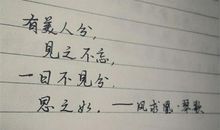 有美人兮,
见之不忘,
一日不见兮,
思之如. ——凤求凰·琴歌